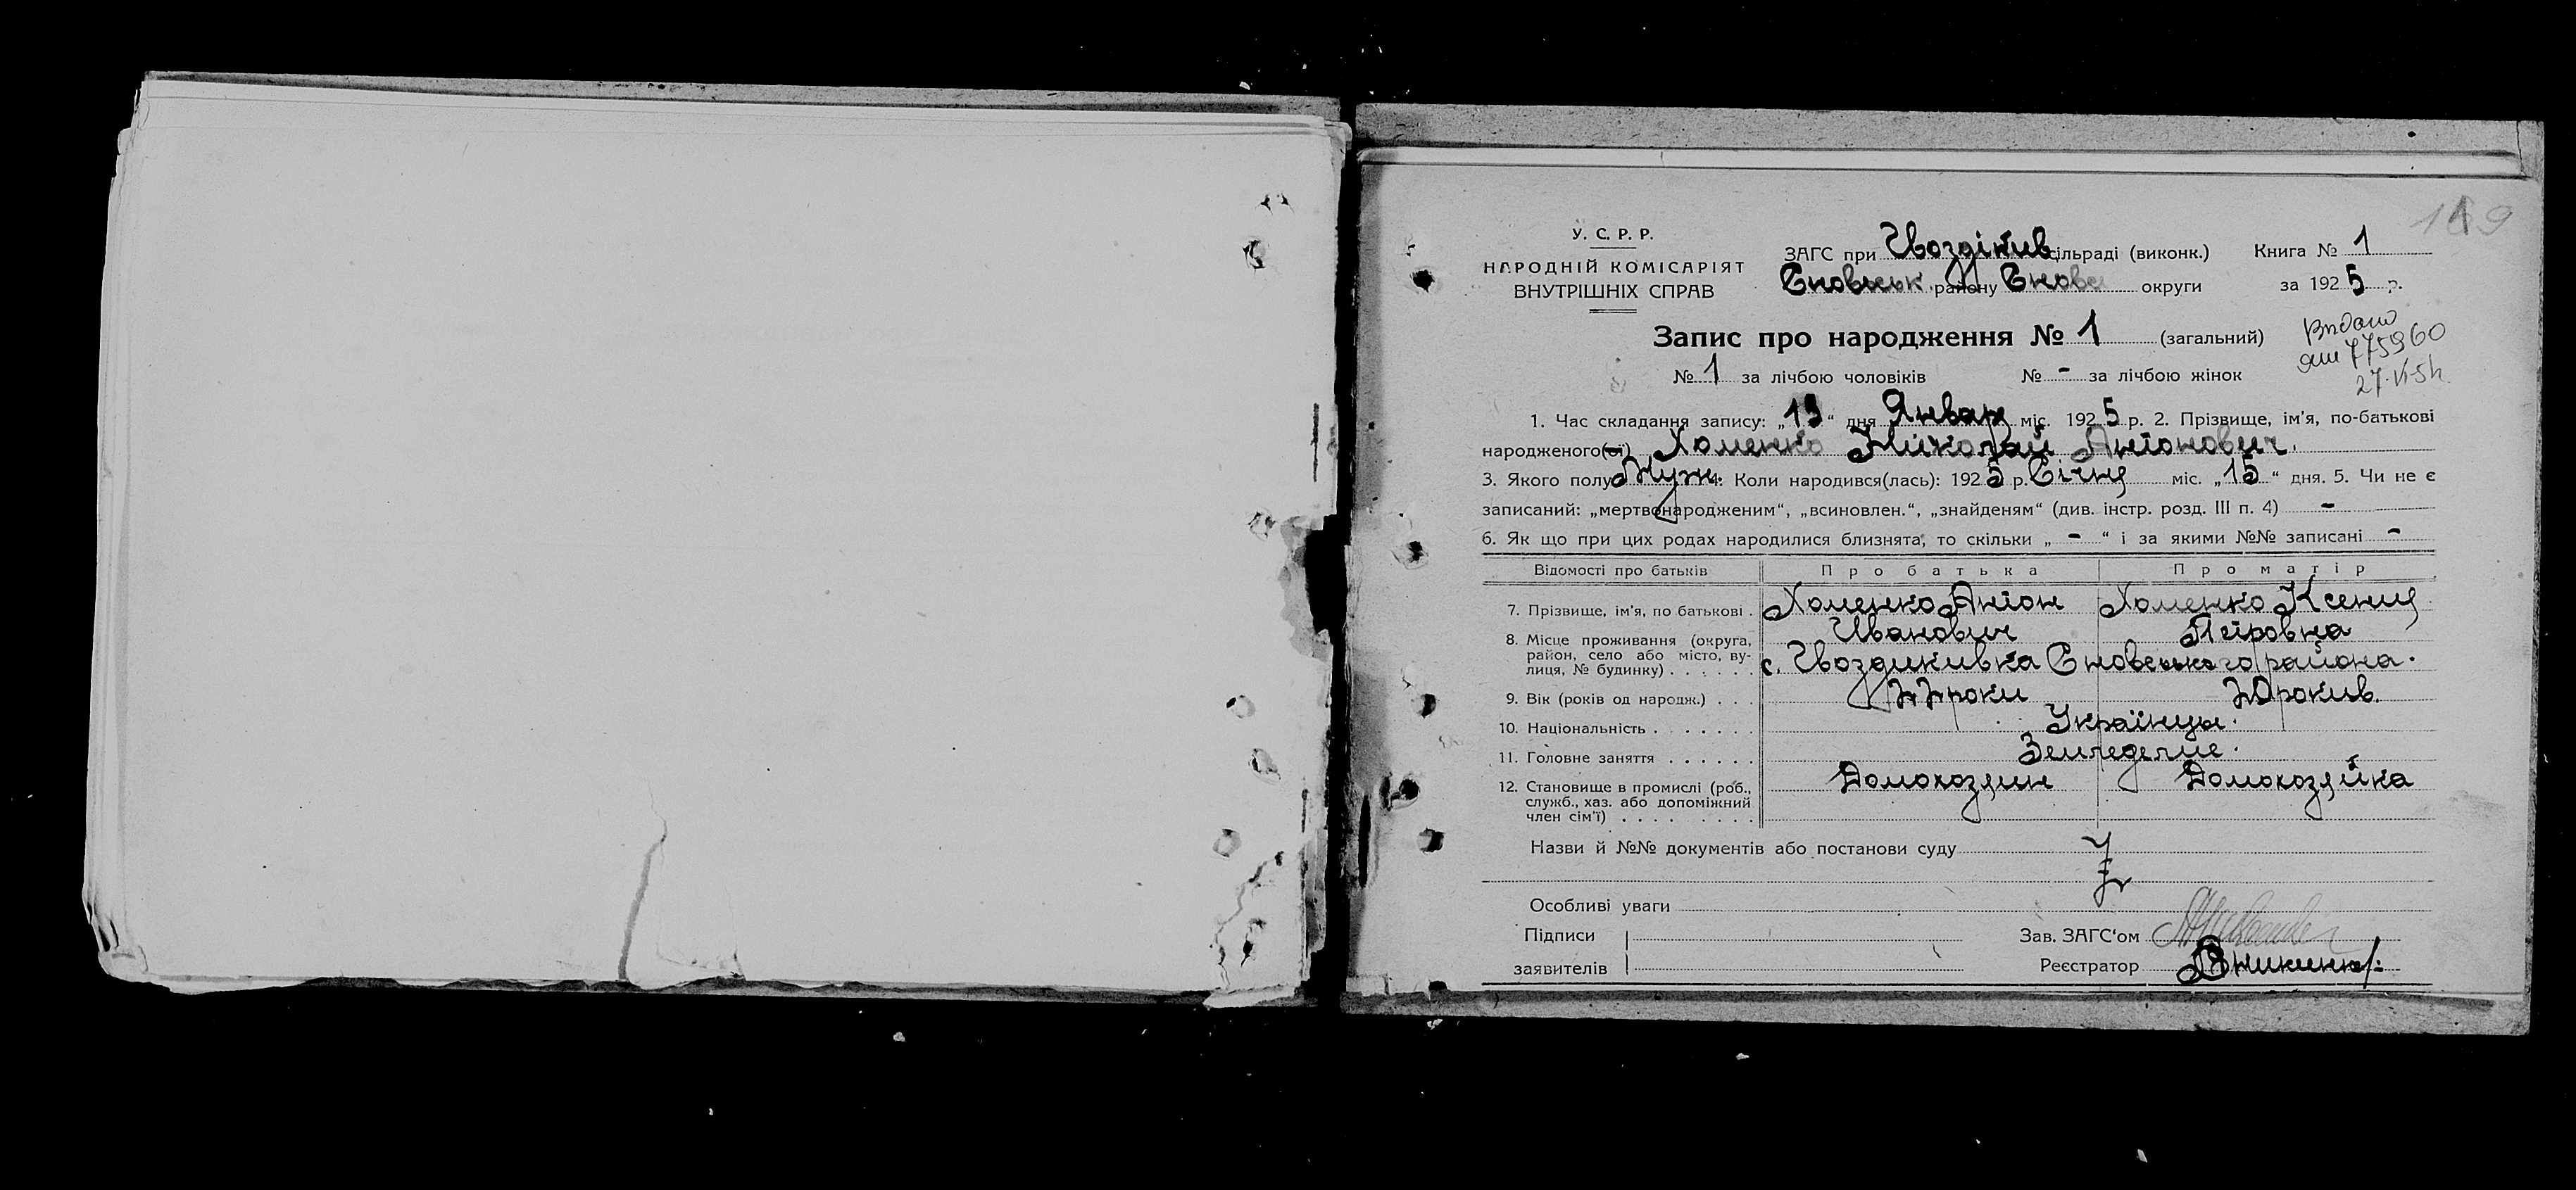 У. С. Р. Р.
НАРОДНІЙ КОМІСАРІЯТ
ВНУТРІШНІХ СПРАВ
ЗАГС при Гвоздіκив сільраді (виконк.)
Сновськ району Сновс округи
Книга № 1
за 1925 р.
Запис про народження № 1 (загальний)
Видано
775960
27·VI-54
№ 1 за лічбою чоловіків № - за лічбою жінок
1. Час складання запису: „19“ дня Январ міс. 1925 р. 2. Прізвище, ім’я, по-батькові
народженого(ої) Хоменко Николай Антонович.
3. Якого полу Муж. 4. Коли народився(лась): 1925 р. Січня міс. „15“ дня. 5. Чи не є
записаний: „мертвонародженим“, „всиновлен.“, „знайденям“ (див. інстр. розд. III п. 4) -
6. Як що при цих родах народилися близнята, то скільки „ - “ і за якими №№ записані -
Відомості про батьків Про батька Про матір
7. Прізвище, ім’я, по батькові . Хоменко Антон Хоменко Ксения
Иванович Петровна
8. Місце проживання (округа,
район, село або місто, ву-
лиця, № будинку) . . . . . . с. Гвоздикивка Сновського района.
9. Вік (років од народж.) . . . роки рокив.
10. Національність . . . . . . . Українцы.
11. Головне заняття . . . . . . Земледелие.
12. Становище в промислі (роб., Домохозяин Домохозяйка
служб., хаз. або допоміжний
член сім’ї) . . . . . . . .
Назви й №№ документів або постанови суду
Особливі уваги
Підписи
заявителів
Зав. ЗАГС‘ом
Реєстратор